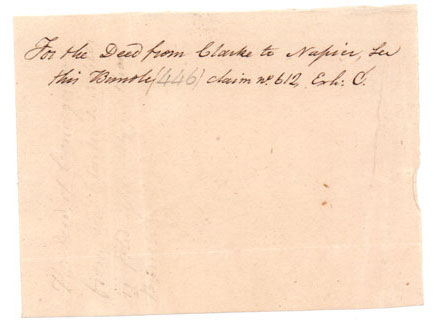 For the Deed from Clarke to Napier, See
this Bundle (446) claim no. 612, Exh: C.